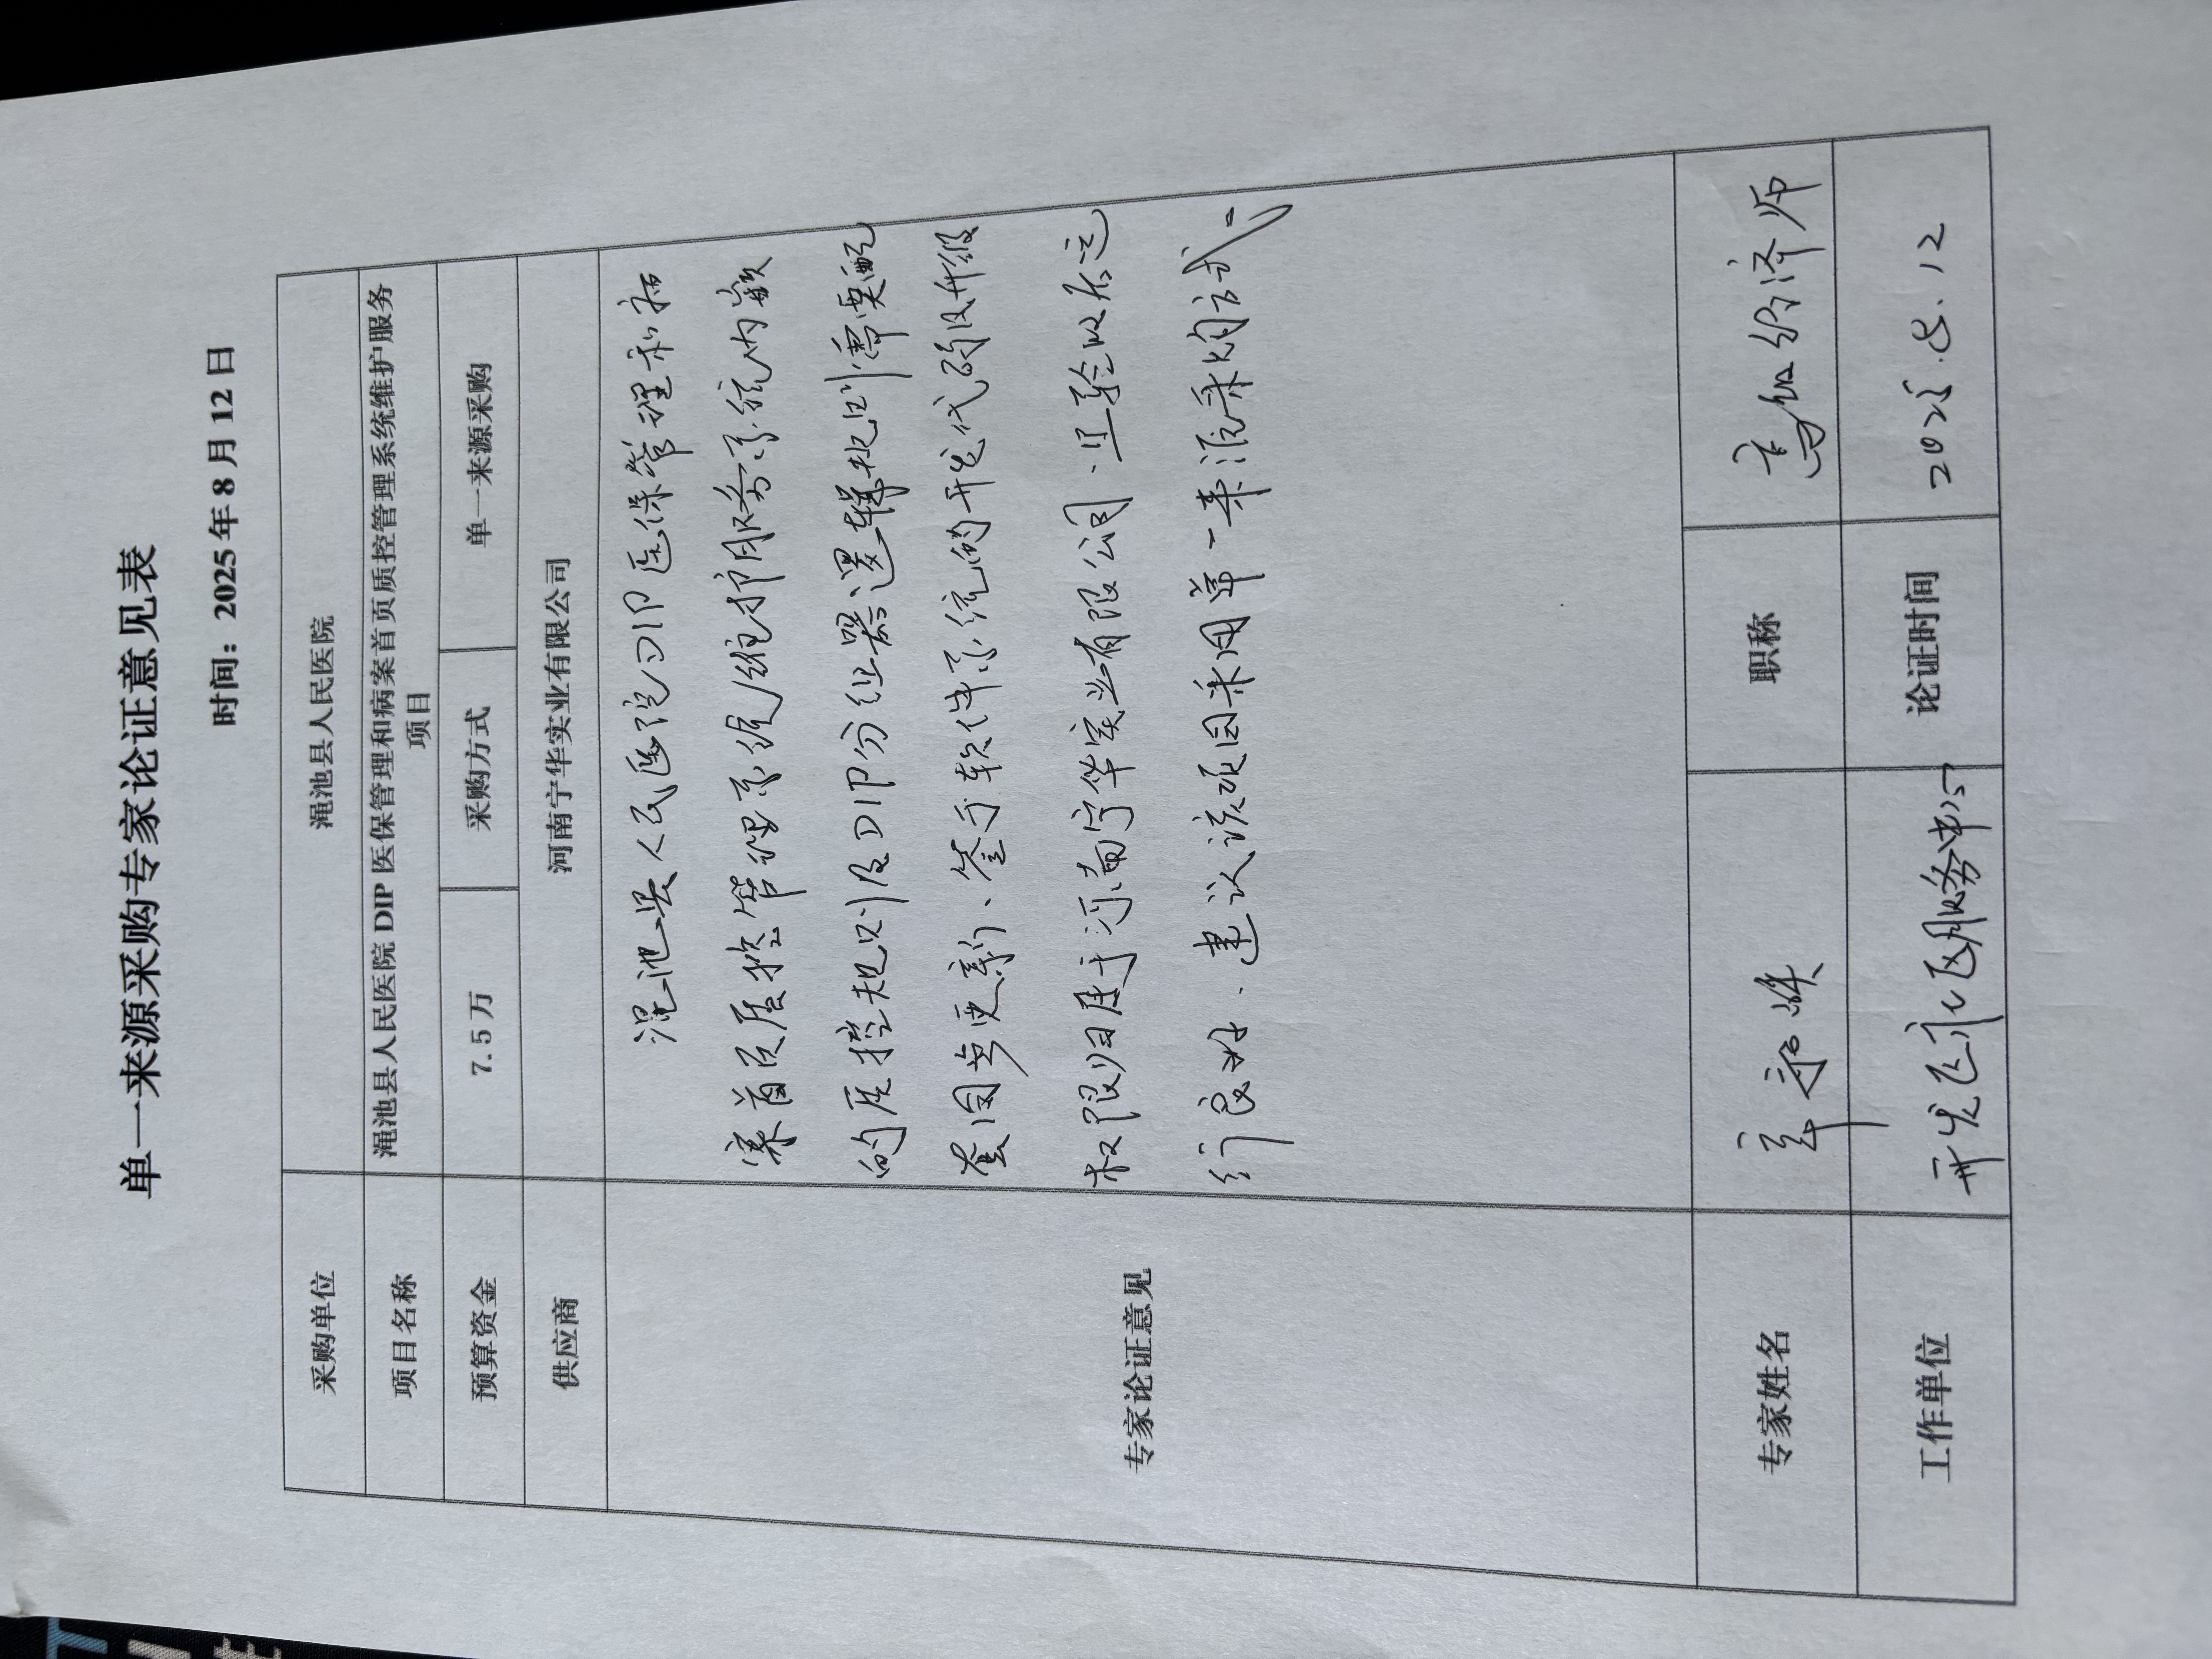 单一来源采购专家论证意见表
时间：2025年8月12日
采购单位 渑池县人民医院
项目名称 渑池县人民医院DIP医保管理和病案首页质控管理系统维护服务
项目
预算资金 7.5万 采购方式 单一来源采购
供应商 河南宁华实业有限公司
专家论证意见
渑池县人民医院DIP医保管理和病
案首页质控管理系统维护服务系统内嵌
的质控规则及DIP分组器逻辑规则需要配
套同步更新、鉴于软件系统的开发代码及升级
权限归属于河南宁华实业有限公司.且验收后运
行良好.建议该项目采用单一来源采购方式。
专家姓名 职称 高级经济师
工作单位 开发区 服务中心 论证时间 2025.8.12